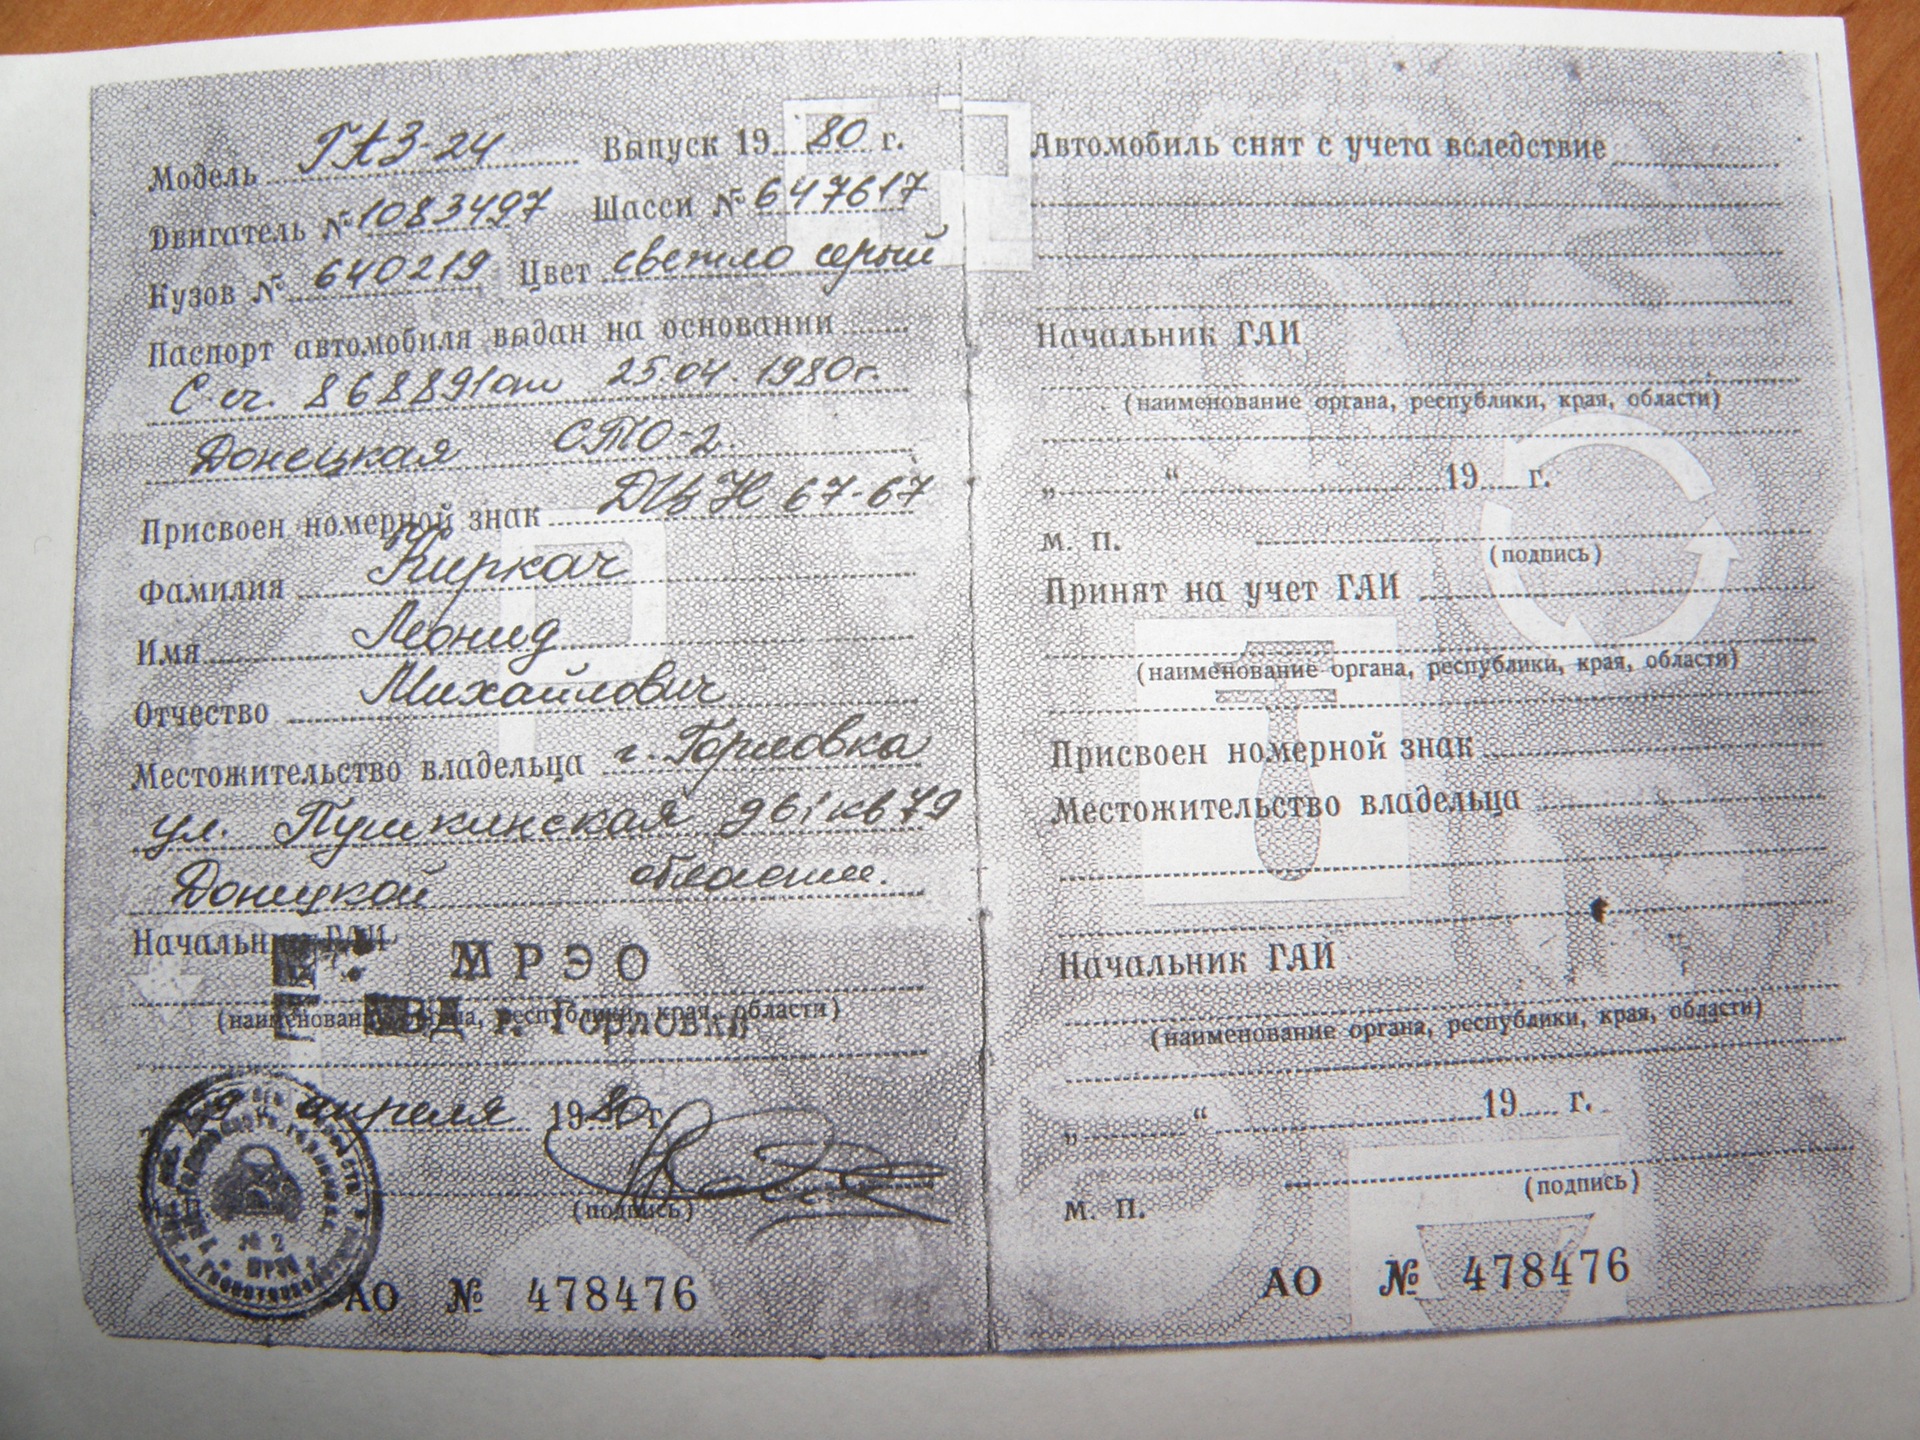 Модель ГАЗ-24 Выпуск 1980 г.
Двигатель № 1083497 Шасси № 647617
Кузов № 640219 Цвет светло серый
Паспорт автомобиля выдан на основании
С-сч. 868891 от 25.04.1980г.
Донецкая СТО-2.
Присвоен номерной знак 67-67
Фамилия Киркач
Имя Леонид
Отчество Михайлович
Местожительство владельца г. Горловка
ул. Пушкинская кв 79
Донецкой области.
Начальник ГАИ
МРЭО
(наименование органа, республики, края, области)
ВД г. Горловка
апреля 1980г.
(подпись)
АО № 478476
Автомобиль снят с учета вследствие
Начальник ГАИ
(наименование органа, республики, края, области)
„ “ 19 г.
М. П.
(подпись)
Принят на учет ГАИ
(наименование органа, республики, края, области)
Присвоен номерной знак
Местожительство владельца
Начальник ГАИ
(наименование органа, республики, края, области)
„ “ 19 г.
(подпись)
М. П.
АО № 478476